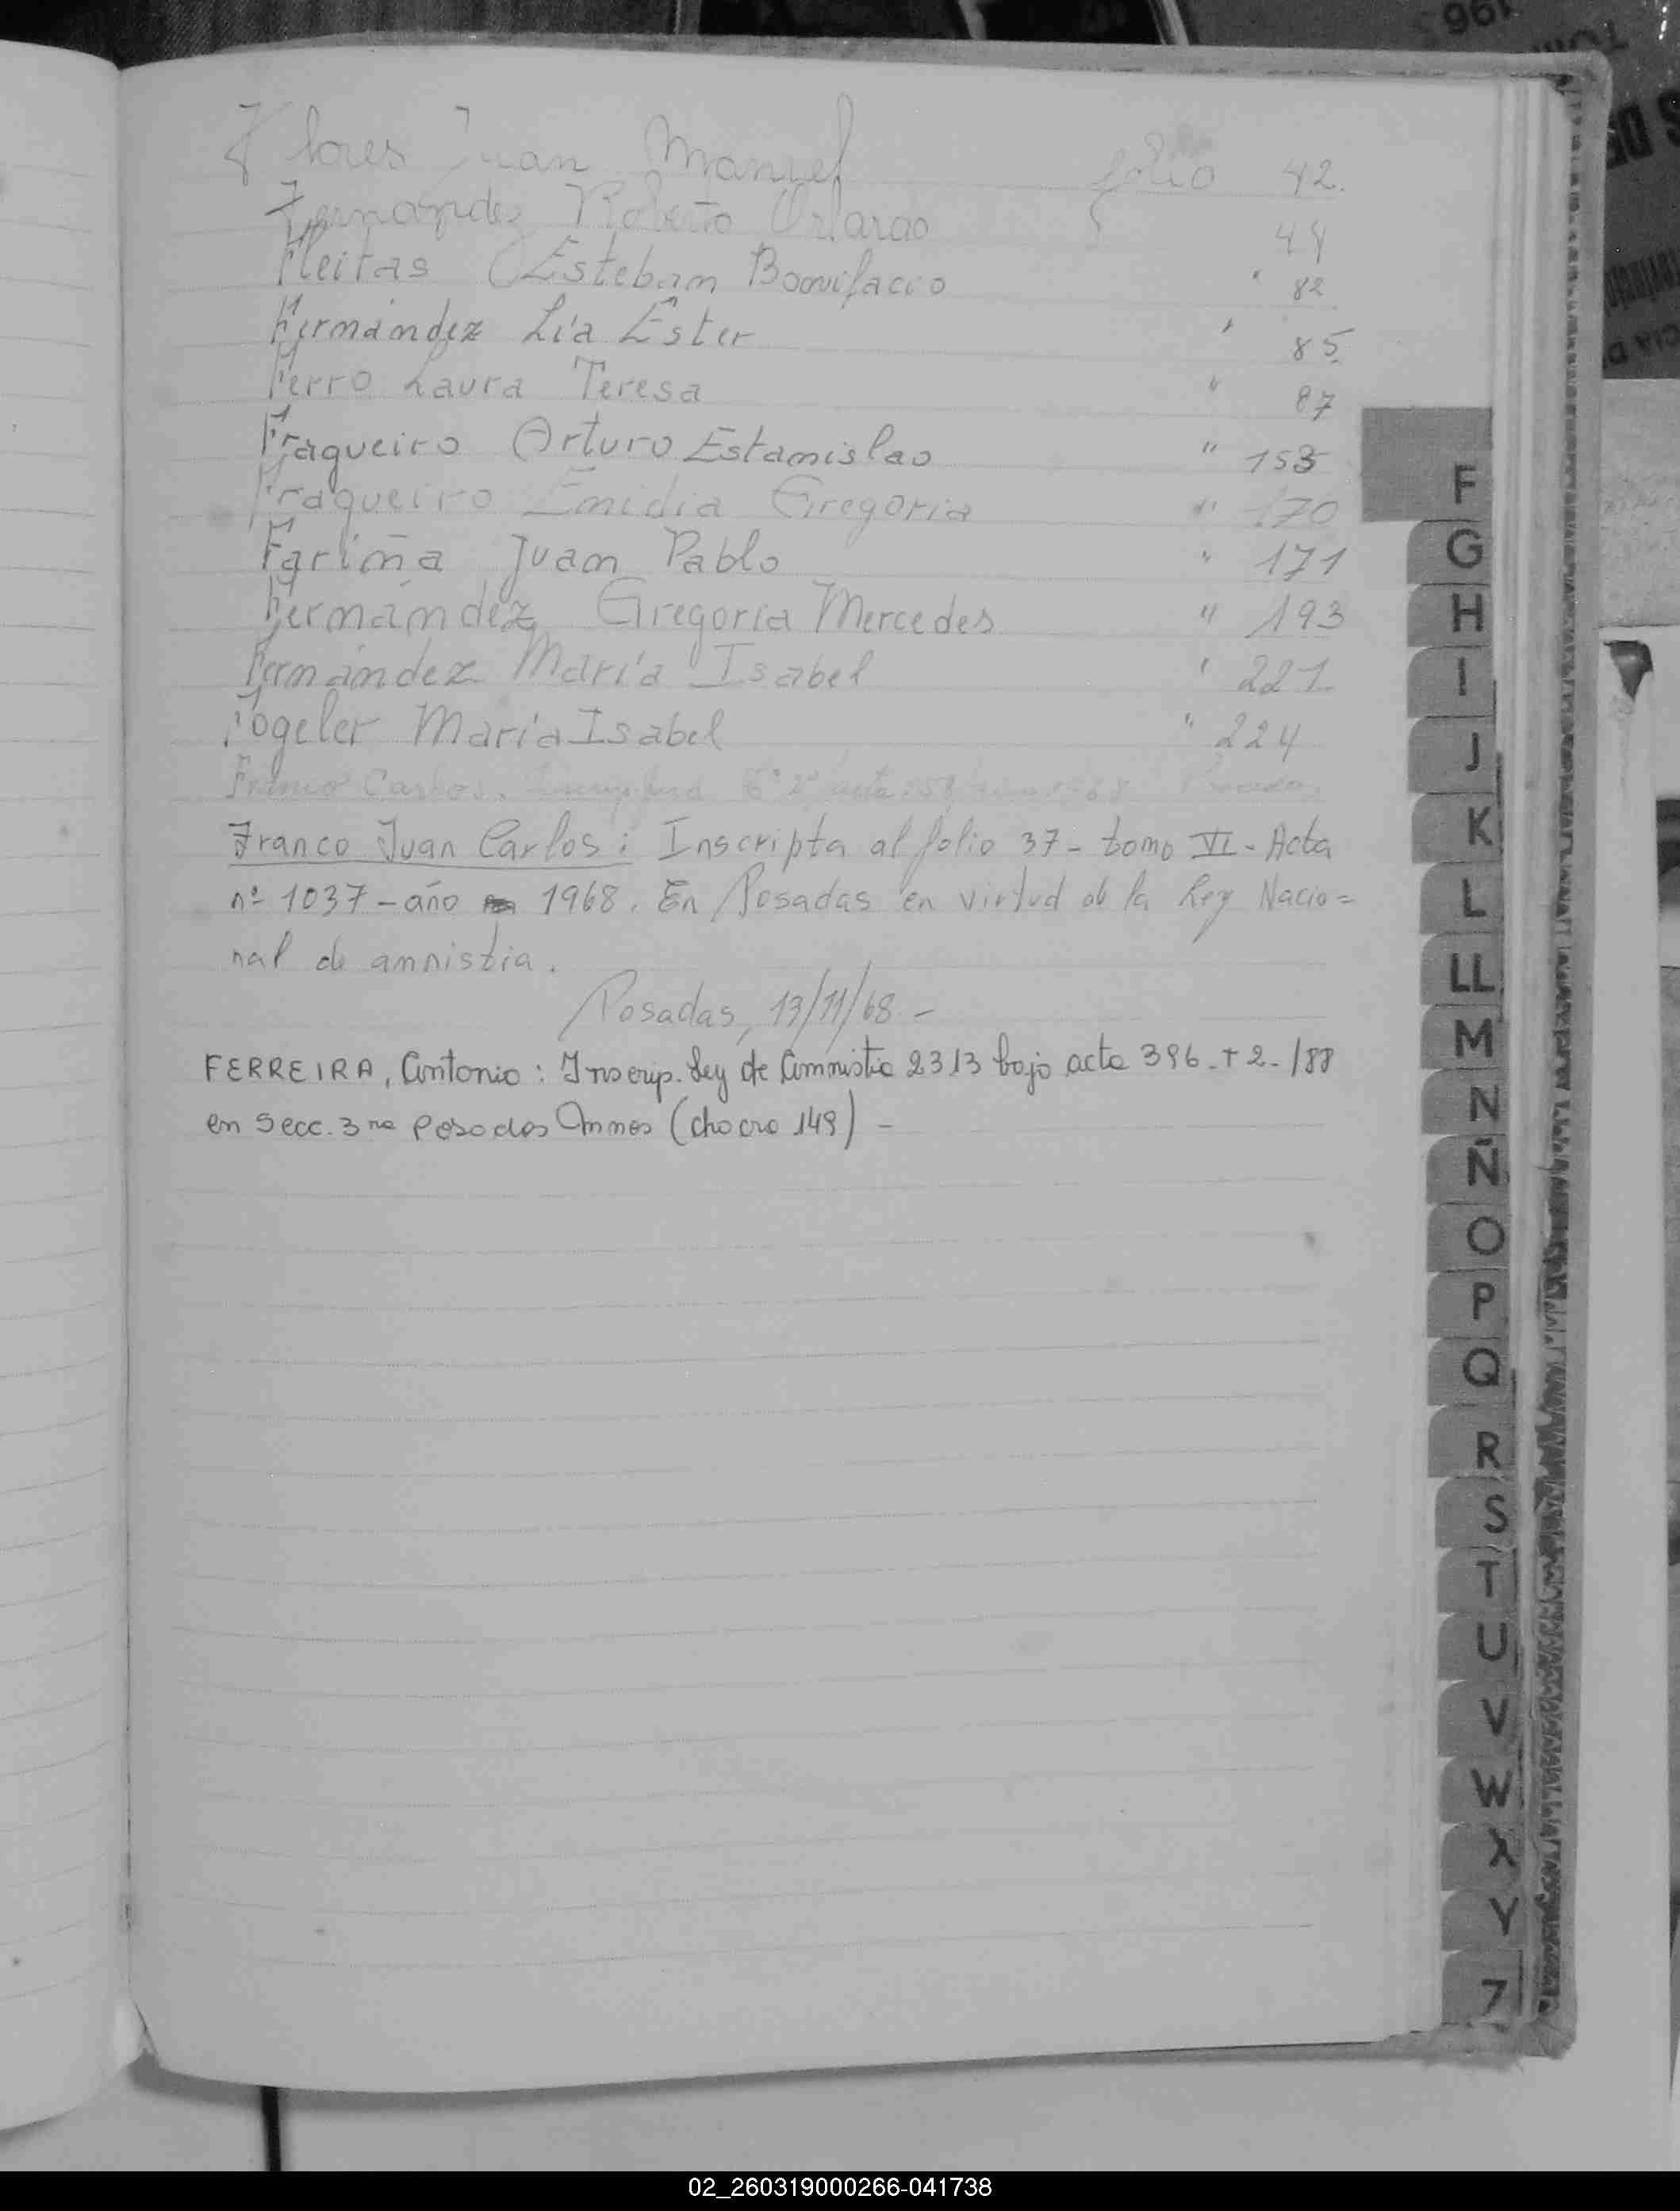 Flores Juan Manuel folio 42.
Fernandez Roberto Orlando 44
Fleitas Esteban Bonifacio " 82
Fernández Lía Ester " 85
Ferro Laura Teresa " 87
Fraqueiro Arturo Estanislao " 153
Fraqueiro Emidia Gregoria " 170
Fariña Juan Pablo " 171
Fernández Gregoria Mercedes " 193
Fernández María Isabel " 221
Fogeler María Isabel " 224
Franco Carlos. acta
Franco Juan Carlos: Inscripta al folio 37 - tomo VI - Acta
nº 1037 - año 1968. En Posadas en virtud de la Ley Nacio=
nal de amnistia.
Posadas, 13/11/68 -
FERREIRA, Antonio: Inscrip. Ley de Amnistia 2313 bajo acta 396 - T 2 - /88
en Secc. 3ra Posadas Mnes (chacra 149) -
F
G
H
I
J
K
L
LL
M
N
Ñ
O
P
Q
R
S
T
U
V
W
X
Y
Z
02_260319000266-041738